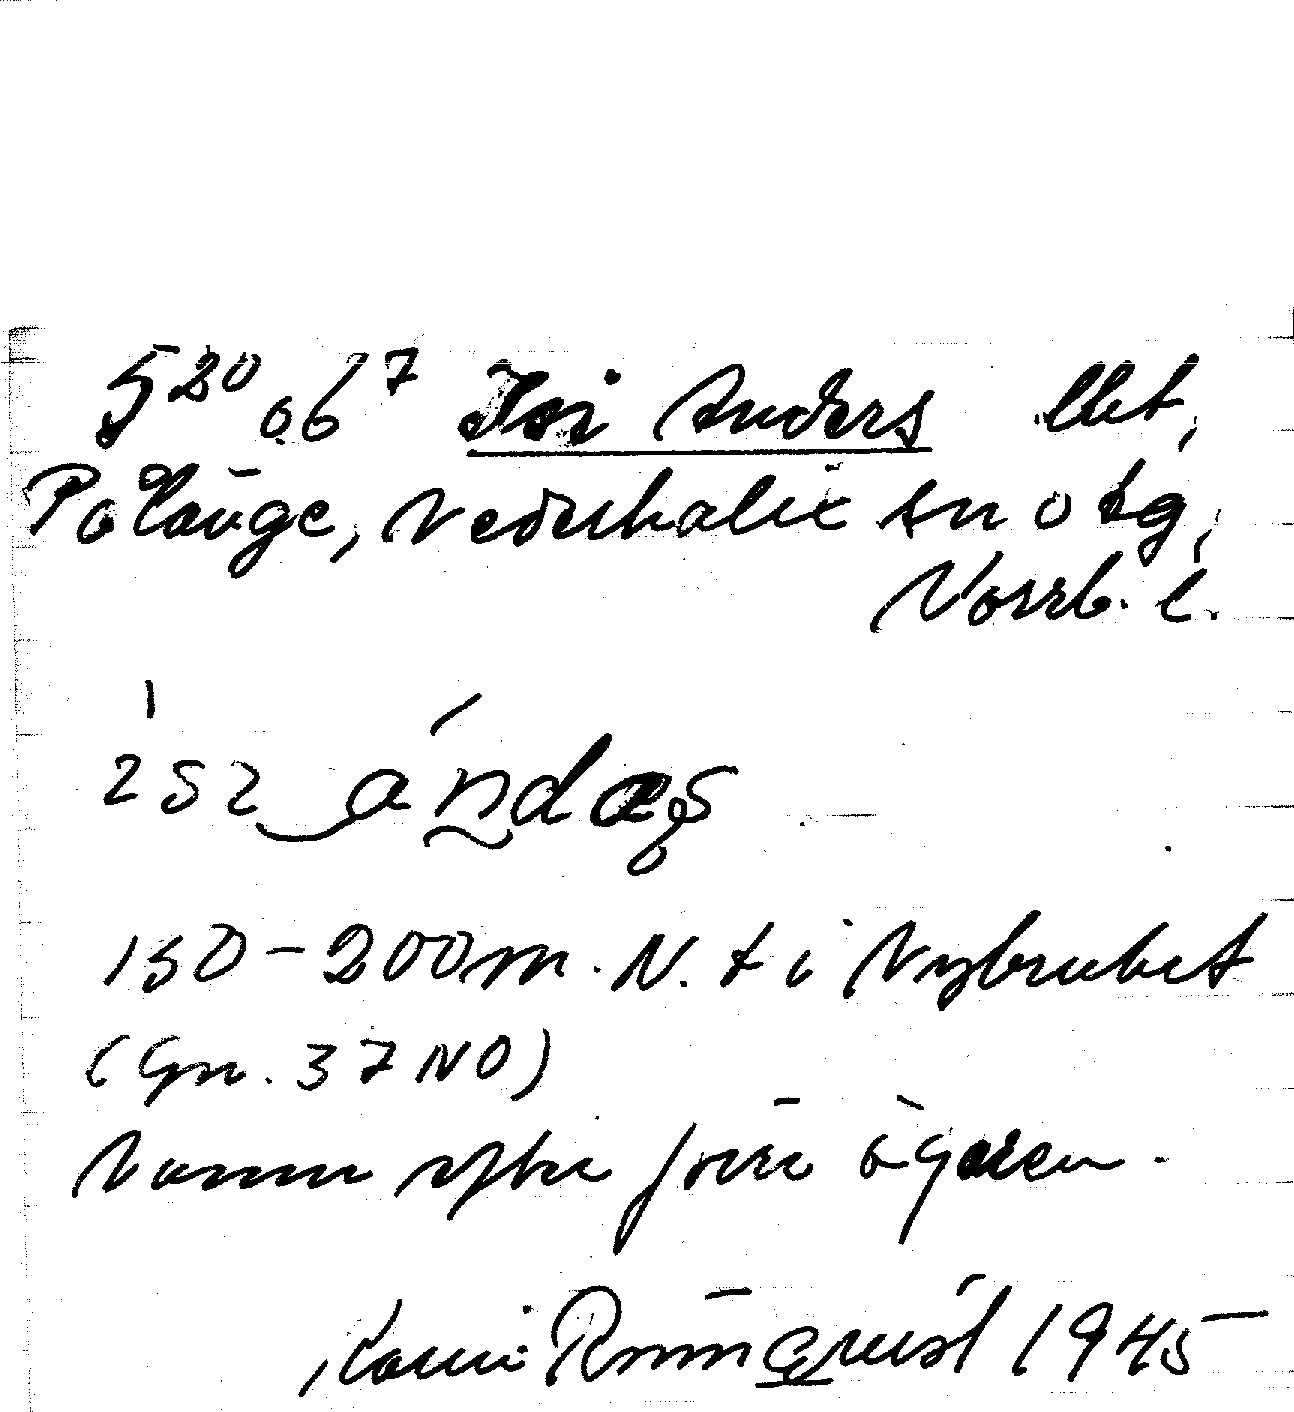 5²⁰ ob⁷ Isi Anders lht,
Pålänge, Nederkalix sn o tg,
Norrb. l.
ɩsɩ‿ándæs
150-200 m. N. t i Nybruket
(Gn. 37 NO)
Namn efter förre ägaren.
Karin Rönnqvist 1945